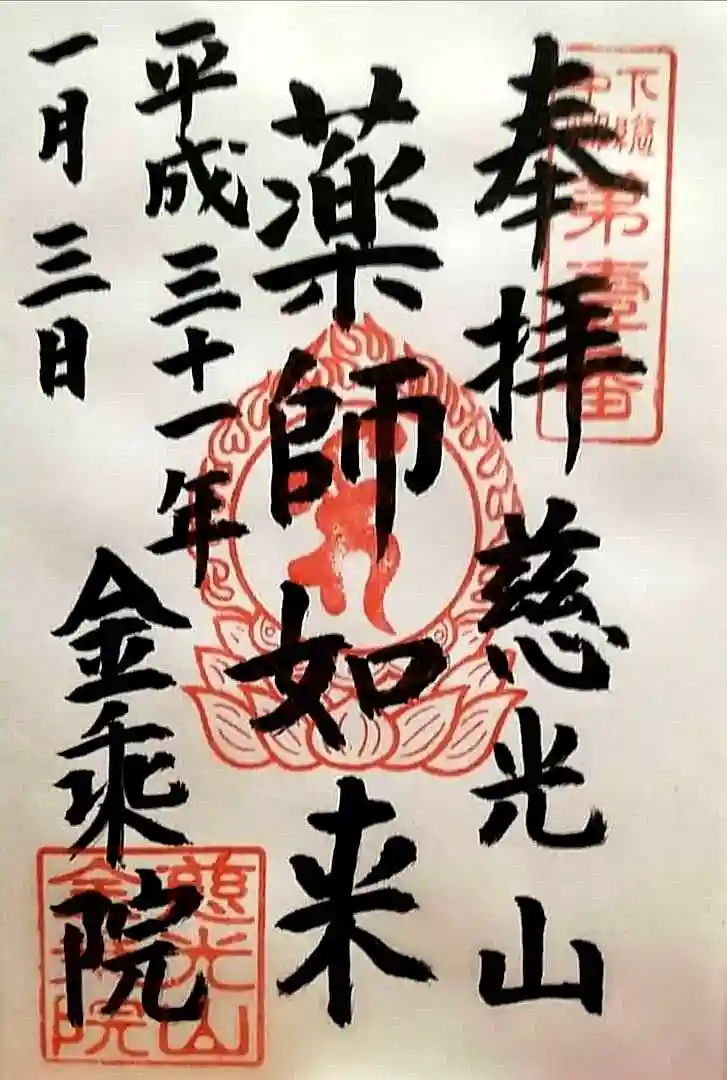 奉拝 慈光山
薬師如来
平成三十一年
一月三日
金乗院
慈光山
金乗院